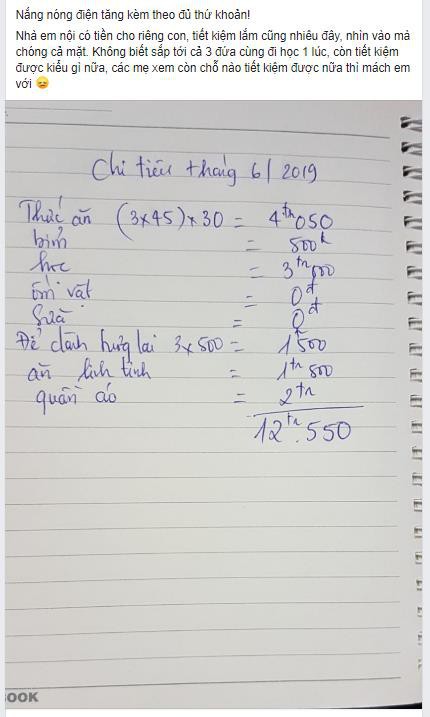 Nắng nóng điện tăng kèm theo đủ thứ khoản!
Nhà em nội có tiền cho riêng con, tiết kiệm lắm cũng nhiêu đây, nhìn vào mà
chóng cả mặt. Không biết sắp tới cả 3 đứa cùng đi học 1 lúc, còn tiết kiệm
được kiểu gì nữa, các mẹ xem còn chỗ nào tiết kiệm được nữa thì mách em
với 😥
Chi tiêu tháng 6/2019
Thức ăn (3x45)x30 = 4tr050
bỉm = 500k
học = 3tr000
ốm vặt = 0đ
Sữa = 0đ
Để dành tương lai 3x500 = 1500
ăn linh tinh = 1tr500
quần áo = 2tr
12tr.550
OOK